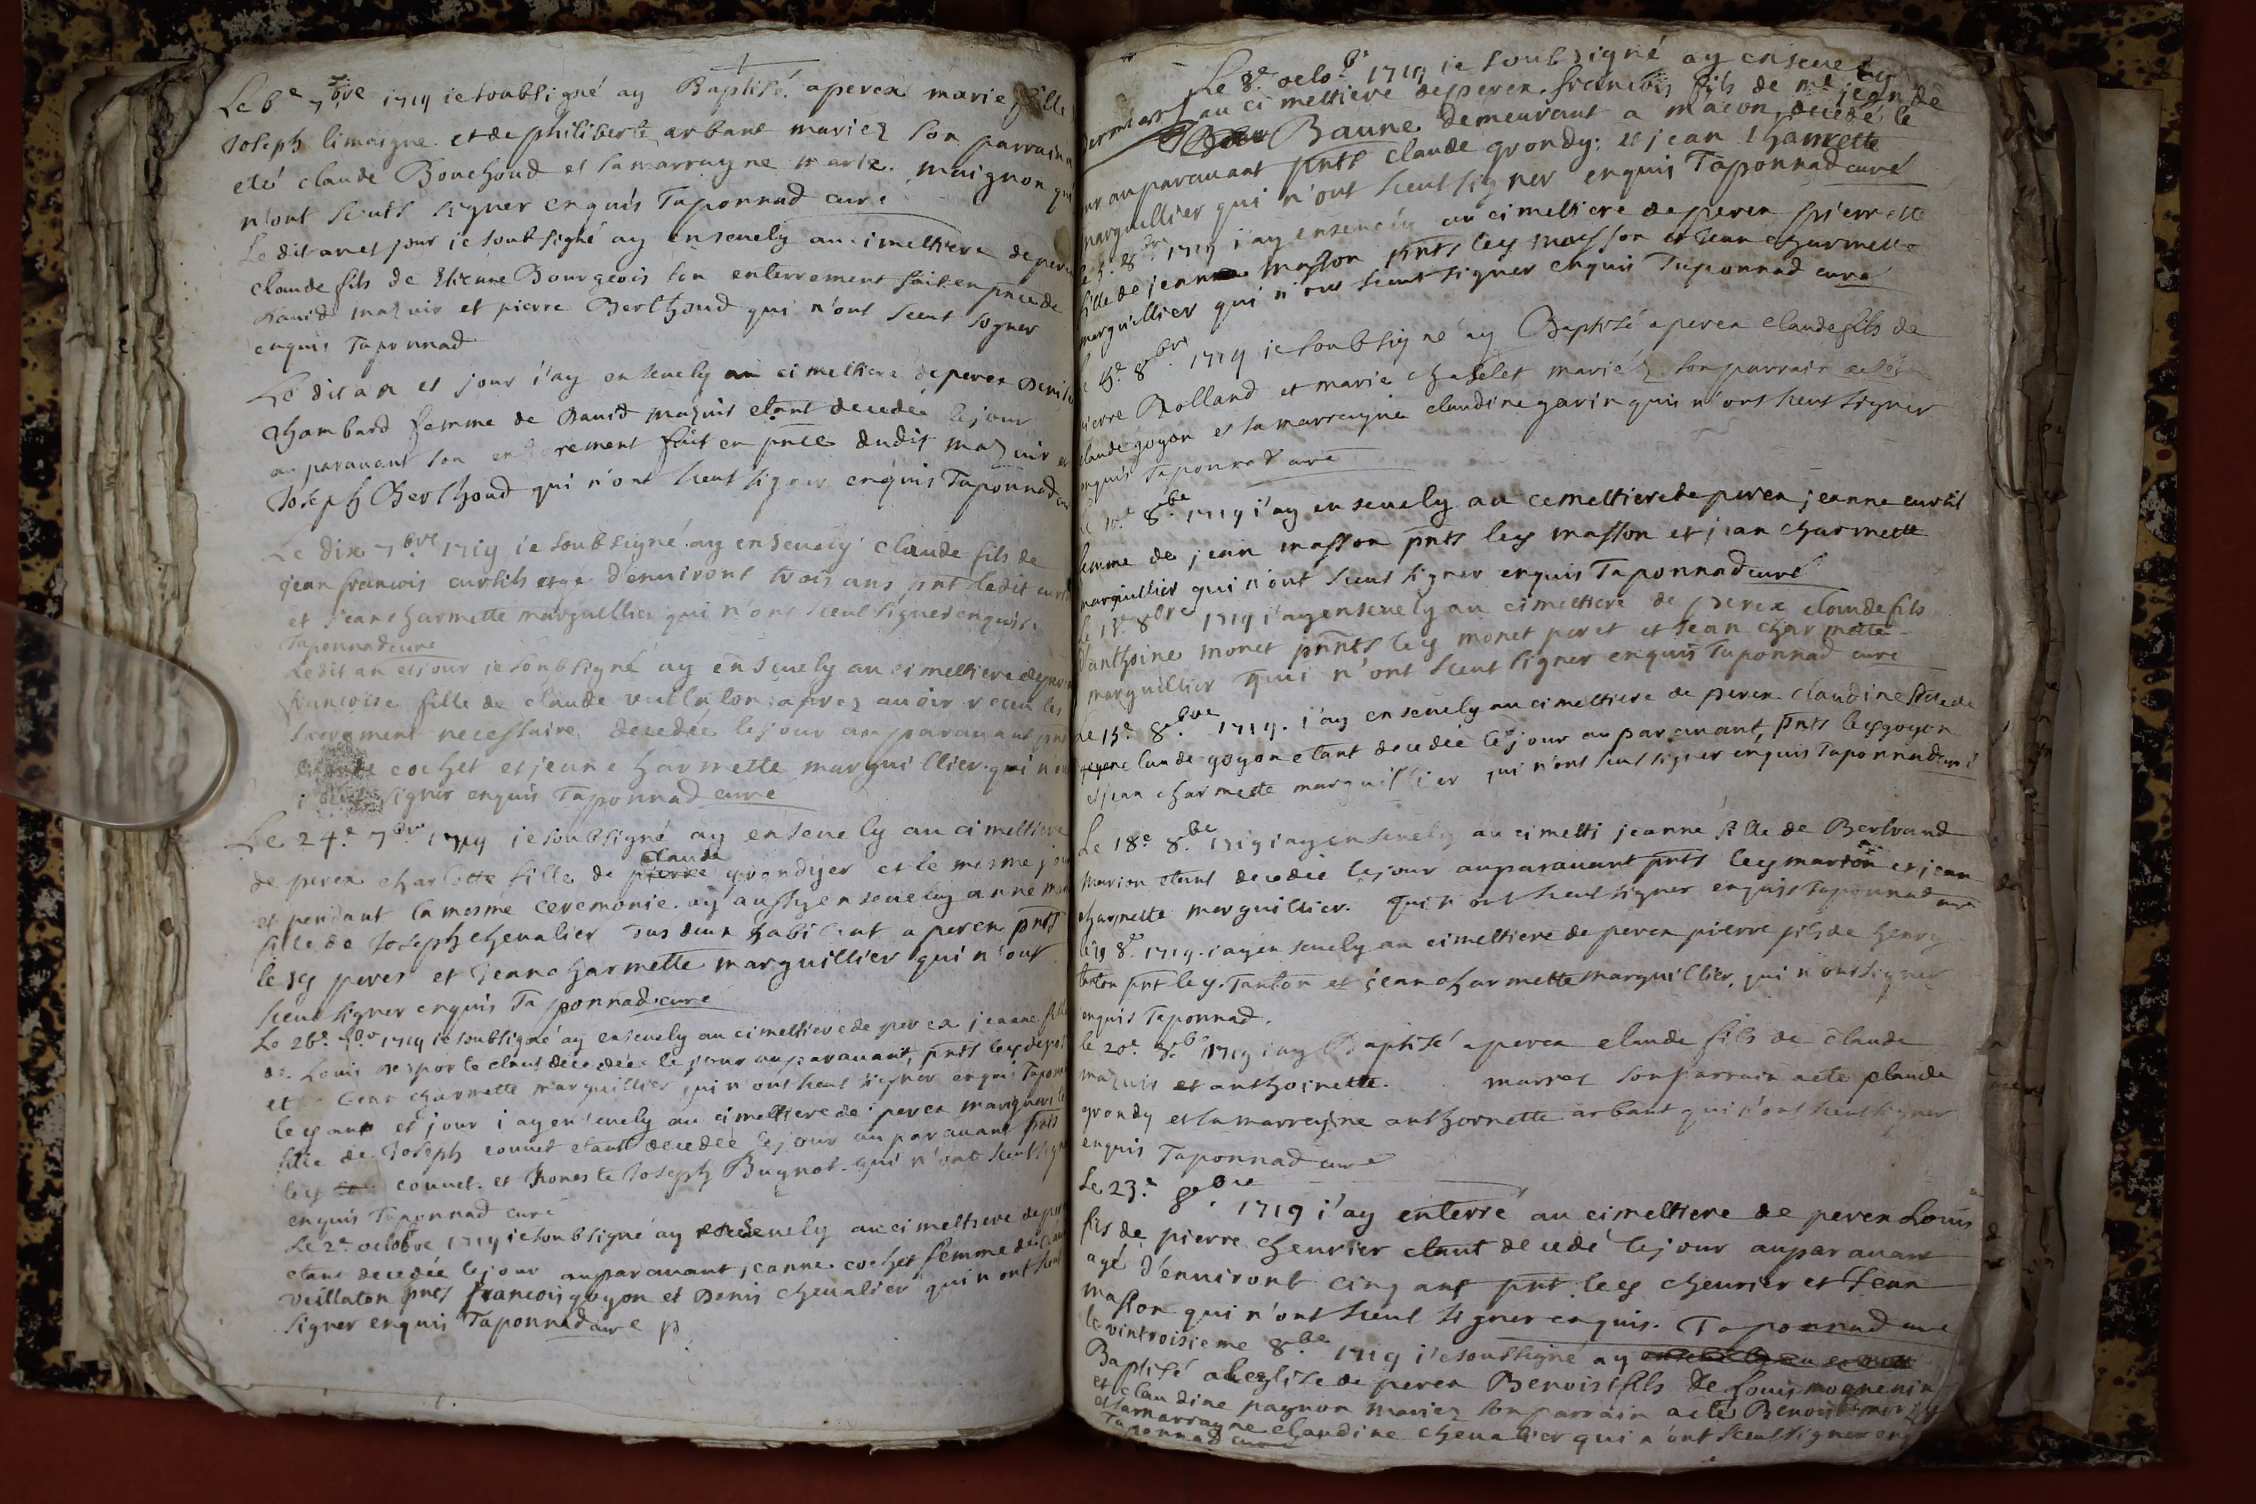 Le 6e 7bre 1719 ie soubsigné ay Baptisé aperex marie fille
Joseph limaigne et de philiberte arbant mariez son parrain a
eté claude Bouchoud et la marrayne marie maignon qui
n'ont sceuts signer enquis Taponnad curé
Le dit an et jour ie soubsigné ay ensevely au cimeltiere de perex
claude fils de Etienne Bourgeois son enterrement fait en pnce de
david mazuir et pierre Berthoud qui n'ont sceut signer
enquis Taponnad
Le dit an et jour i'ay ensevely au cimeltiere de perex Denise
Chambard femme de David mazuir etant decedée le jour
auparavant son enterrement fait en pnce dudit mazuir et
Joseph Berthoud qui n'ont sceut signer enquis Taponnad
Le dix 7bre 1719 ie soubsigné ay ensevely claude fils de
jean francois curtil agé d'environt trois ans pnt ledit curtil
et jean charmette marguillier qui n'ont sceut signer enquis
Taponnad curé
Ledit an et jour ie soubsigné ay ensevely au cimeltiere de perex
francoise fille de claude vuillaton aprez avoir receu les
sacrement necessaire decedée le jour auparavant pnt
cochet et jean charmette marguillier qui n'ont
sceut signer enquis Taponnad curé
Le 24e 7bre 1719 ie soubsigné ay ensevely au cimeltiere
de perex charlotte fille de pierre claude grondyer et le mesme jour
et pendant la mesme ceremonie ay aussy ensevely anne
fille de Joseph chevalier tus deux habitant a perex pnts
lesys peres et jean charmette marguillier qui n'ont
sceut signer enquis Taponnad curé
Le 26e 7bre 1719 ie soubsigné ay ensevely au cimeltiere de perex jeanne fille
de Louis desporte etant decedée le jour auparavant, pnts
et jean charmette marguillier qui n'ont sceut signer enquis Taponnad
lesy an et jour i ay ensevely au cimeltiere de perex
fille de Joseph couvet etant decedée le jour auparavant pnts
lesy couvet et honeste Joseph Bugnot qui n'ont sceut signer
enquis Taponnad curé
Le 2e octobre 1719 ie soubsigné ay ensevely au cimeltiere de perex
etant decedée le jour auparavant jeanne cochet femme de
vuillaton pnts francois goyon et Denis chevalier qui n'ont sceut
signer enquis Taponnad curé
Le 8e octobre 1719 ie soubsigné ay ensevely
au cimeltiere de perex francois fils de mr jean de
Baune demeurant a mâcon decedé le
jour auparavant pnts claude grondy et jean charmette
marguillier qui n'ont sceut signer enquis Taponnad curé
8bre 1719 i'ay ensevely au cimeltiere de perex pierrette
fille de jean masson pnts lesy masson et jean charmette
marguillier qui n'ont sceut signer enquis Taponnad curé
8bre 1719 ie soubsigné ay Baptisé aperex claude fils de
pierre Rolland et marie chaselet mariéz son parrain a eté
claude goyon et la marrayne claudine gavin qui n'ont sceut signer
enquis Taponnad curé
8bre 1719 i'ay ensevely au cemeltiere de perex jeanne curtil
femme de jean masson pnts lesy masson et jean charmette
marguillier qui n'ont sceut signer enquis Taponnad curé
le 8bre 1719 i'ay ensevely au cimeltiere de perex claude fils
d'anthoine monet pnnts lesy monet peret et jean charmette
marguillier qui n'ont sceut signer enquis Taponnad curé
Le 15e 8bre 1719 i'ay ensevely au cimeltiere de perex claudine fille de
claude goyon etant decedée le jour auparavant, pnts lesy goyon
et jean charmette marguillier qui n'ont sceut signer enquis Taponnad curé
Le 18e 8bre 1719 i ay ensevely au cimelti jeanne fille de Bertrand
marion etant decedée le jour auparavant pnts lesy marion et jean
charmette marguillier qui n'ont sceut signer enquis Taponnad curé
le 19 8e 1719 i ay ensevely au cimeltiere de perex pierre fils de henry
tanton pnt lesy Tanton et jean charmette marguillier, qui n'ont signer
enquis Taponnad.
le 20e 8bre 1719 i ay Baptisé aperex claude fils de claude
mazuir et anthoinette marret son parrain a ete claude
grondy et la marrayne anthoinette arbant qui n'ont sceut signer
enquis Taponnad curé
Le 23e 8bre 1719 i'ay enterré au cimeltiere de perex Louis
fils de pierre chevrier etant decedé le jour auparavant
agé d'environt cinq ans pnt lesy chevrier et jean
masson qui n'ont sceut signer enquis. Taponnad curé
le vintroisieme 8bre 1719 ie soubsigné ay
Baptisé a leglise de perex Benoist fils de Louis moanenin
et claudine pagnon mariez son parrain a eté Benoist
et la marrayne claudine chevalier qui n'ont sceut signer enq
Taponnad curé